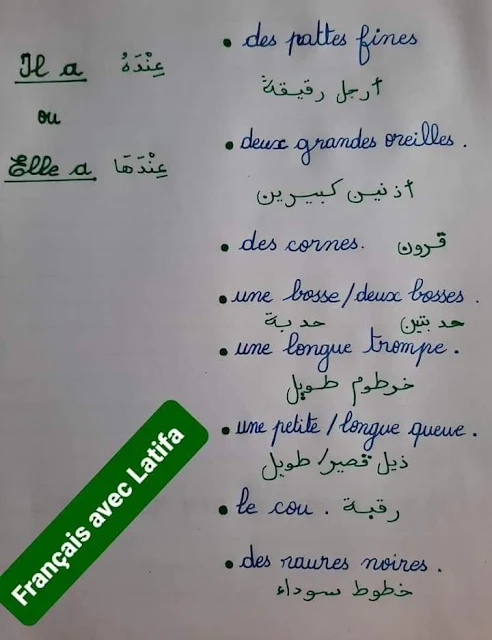 Il a عِنْدَهُ
ou
Elle a عِنْدَهَا
• des pattes fines
أرجل رقيقة
• deux grandes oreilles.
أذنين كبيرين
• des cornes. قرون
• une bosse/deux bosses.
حدبة حدبتين
• une longue trompe.
خرطوم طويل
• une petite/longue queue.
ذيل قصير/طويل
• le cou. رقبة
• des raures noires.
خطوط سوداء
Français avec Latifa